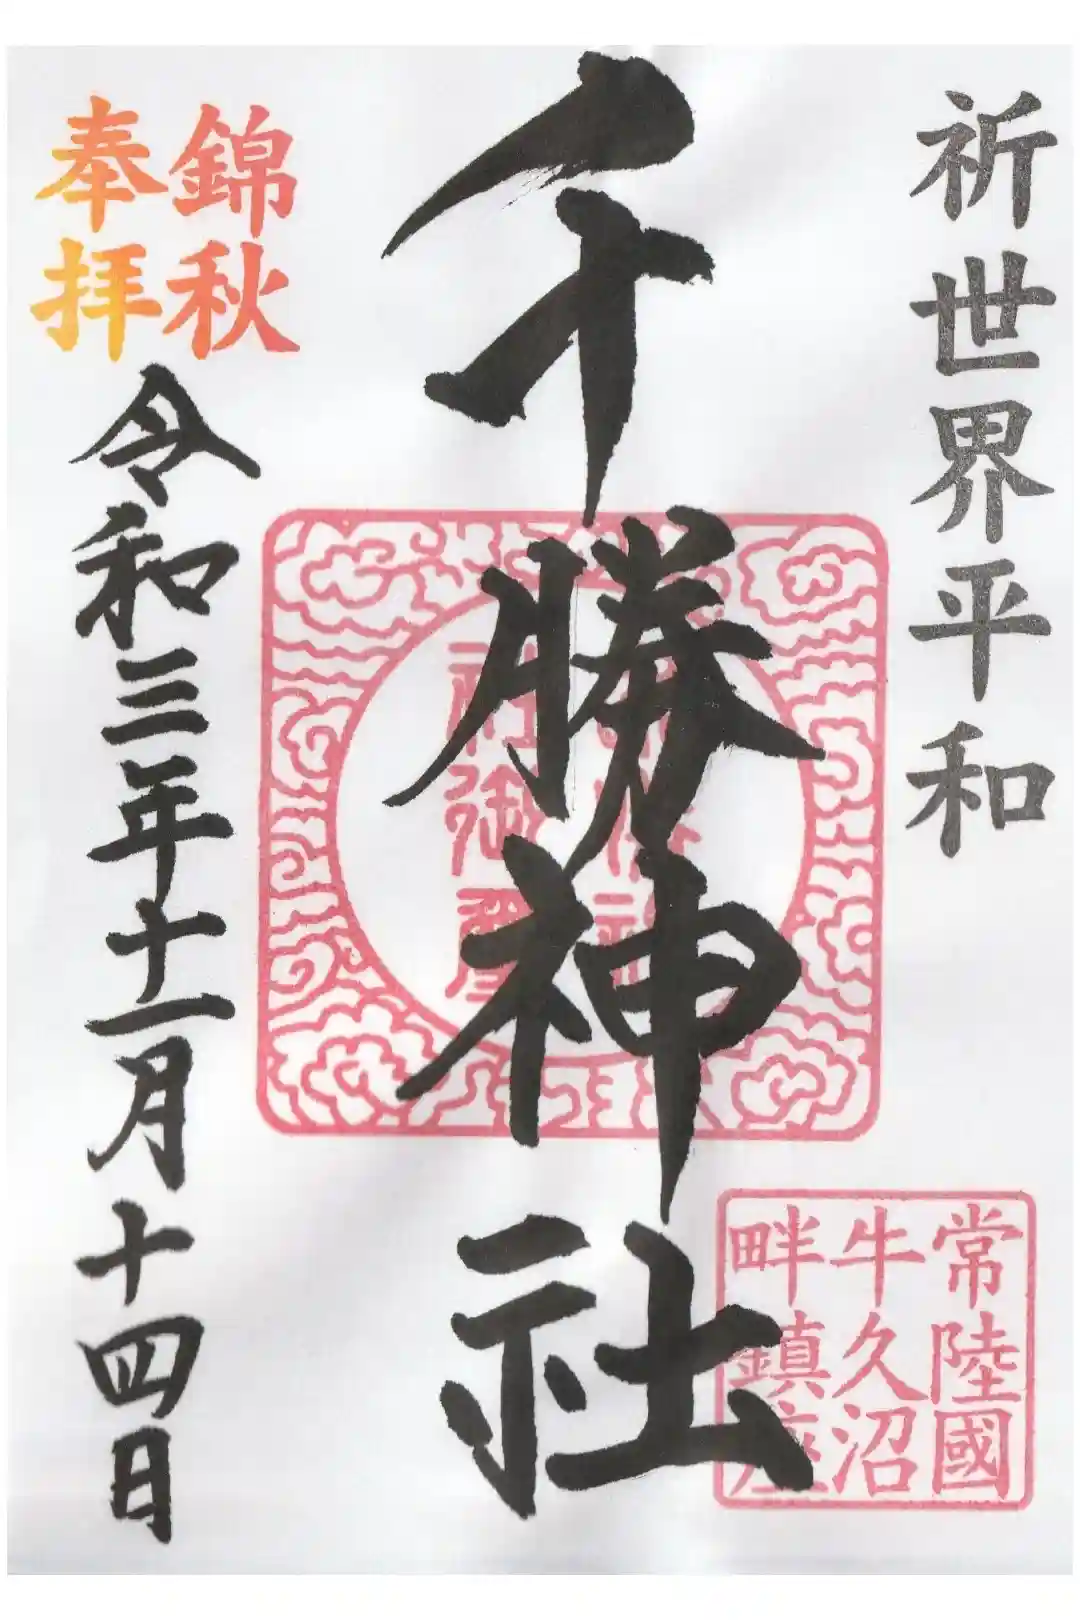 祈世界平和
千勝神社
錦秋
奉拝
令和三年十一月十四日
常陸國
牛久沼
畔鎮座